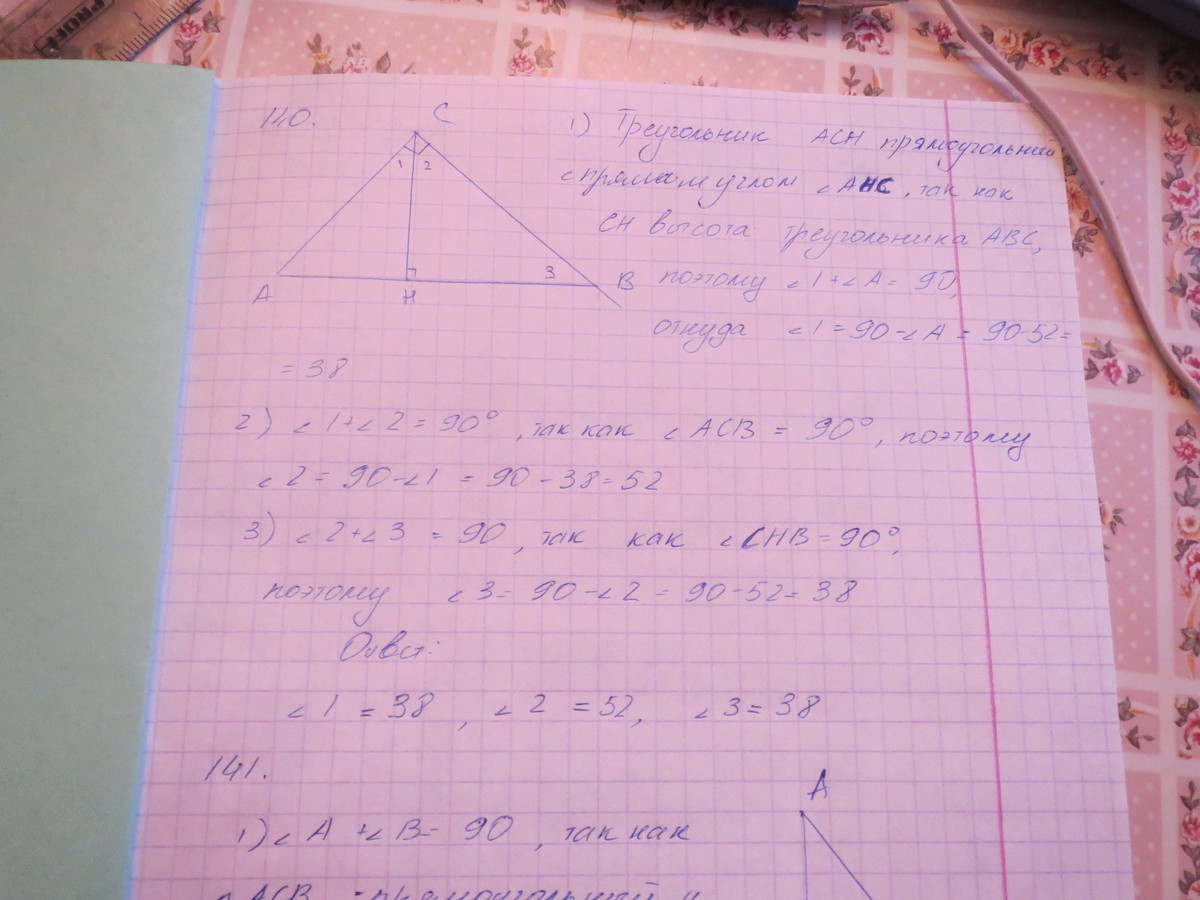 PROFF
140.
C
1) Треугольник ACH прямоугольный
1 2
с прямым углом ∠AHC, так как
CH высота треугольника ABC,
3
A H B
поэтому ∠1+∠A = 90,
откуда ∠1 = 90-∠A = 90-52=
= 38
2) ∠1+∠2 = 90°, так как ∠ACB = 90°, поэтому
∠2 = 90-∠1 = 90-38=52
3) ∠2+∠3 = 90, так как ∠CHB = 90°,
поэтому ∠3 = 90-∠2 = 90-52= 38
Ответ:
∠1 = 38, ∠2 = 52, ∠3 = 38
141.
A
1) ∠A +∠B= 90, так как
ACB -прямоугольный и